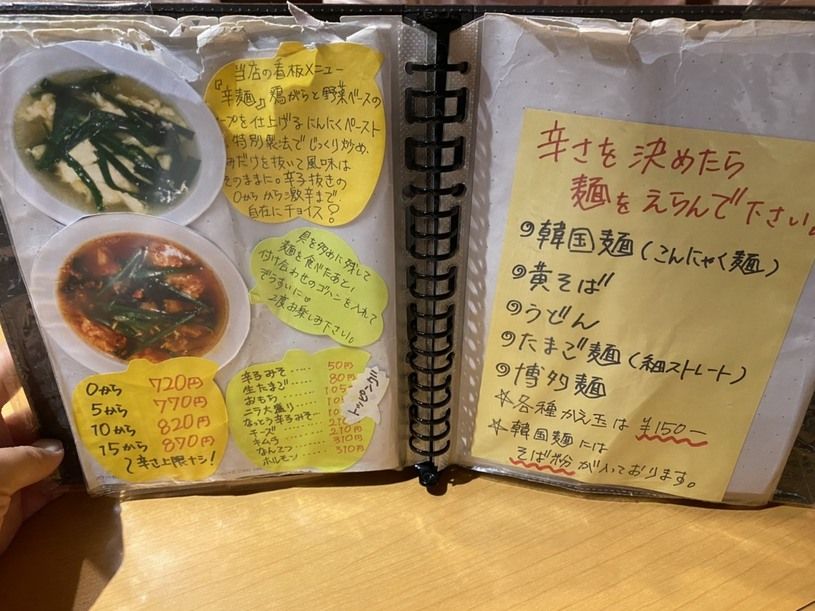 当店の看板メニュー
『辛麺』鶏がらと野菜ベースの
ープを仕上げるにんにくペースト
特別製法でじっくり炒め、
みだけを抜いて風味は
そのままに。辛子抜きの
0からから激辛まで
自在にチョイス?
具を多めに残して
麺を食べたあと!
付け合わせのゴハンを入れて
ぞうすいに。
2度お楽しみ下さい。
0から 720円
5から 770円
10から 820円
15から 870円
〜辛さ上限ナシ!
トッピング
辛子みそ…… 50円
生たまご…… 80円
おもち……
ニラ大盛り…
なっとう辛子みそ…
チーズ 210円
キムチ 310円
なんこつ 310円
ホルモン
辛さを決めたら
麺をえらんで下さい。
◎韓国麺(こんにゃく麺)
◎黄そば
◎うどん
◎たまご麺(細ストレート)
◎博多麺
☆各種かえ玉は ¥150ー
☆韓国麺には
そば粉が入っております。